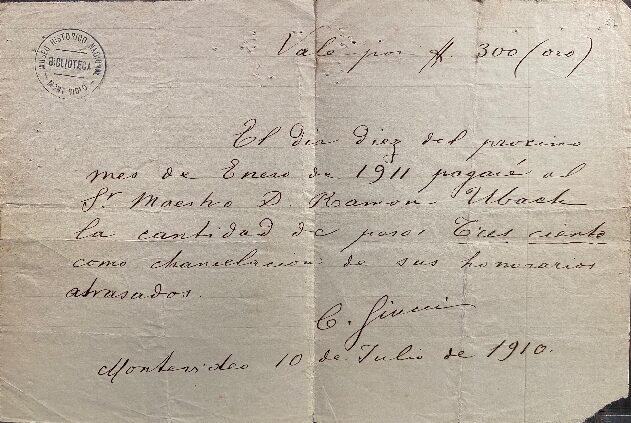 MUSEO HISTORICO NACIONAL
BIBLIOTECA
Vale por $. 300 (oro)
El día diez del proximo
mes de Enero de 1911 pagaré al
Sr Maestro D. Ramon Ubach
la cantidad de pesos Tres ciento
como chancelacion de sus honorarios
atrasados.
C.
Montevideo 10 de Julio de 1910.